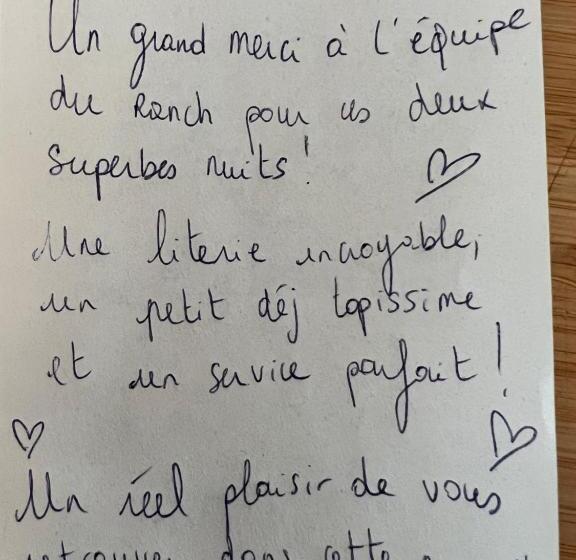 Un grand merci à l'équipe
du Ranch pour ces deux
superbes nuits !
Une literie incroyable,
un petit déj topissime
et un service parfait !
Un réel plaisir de vous
retrouver dans cette